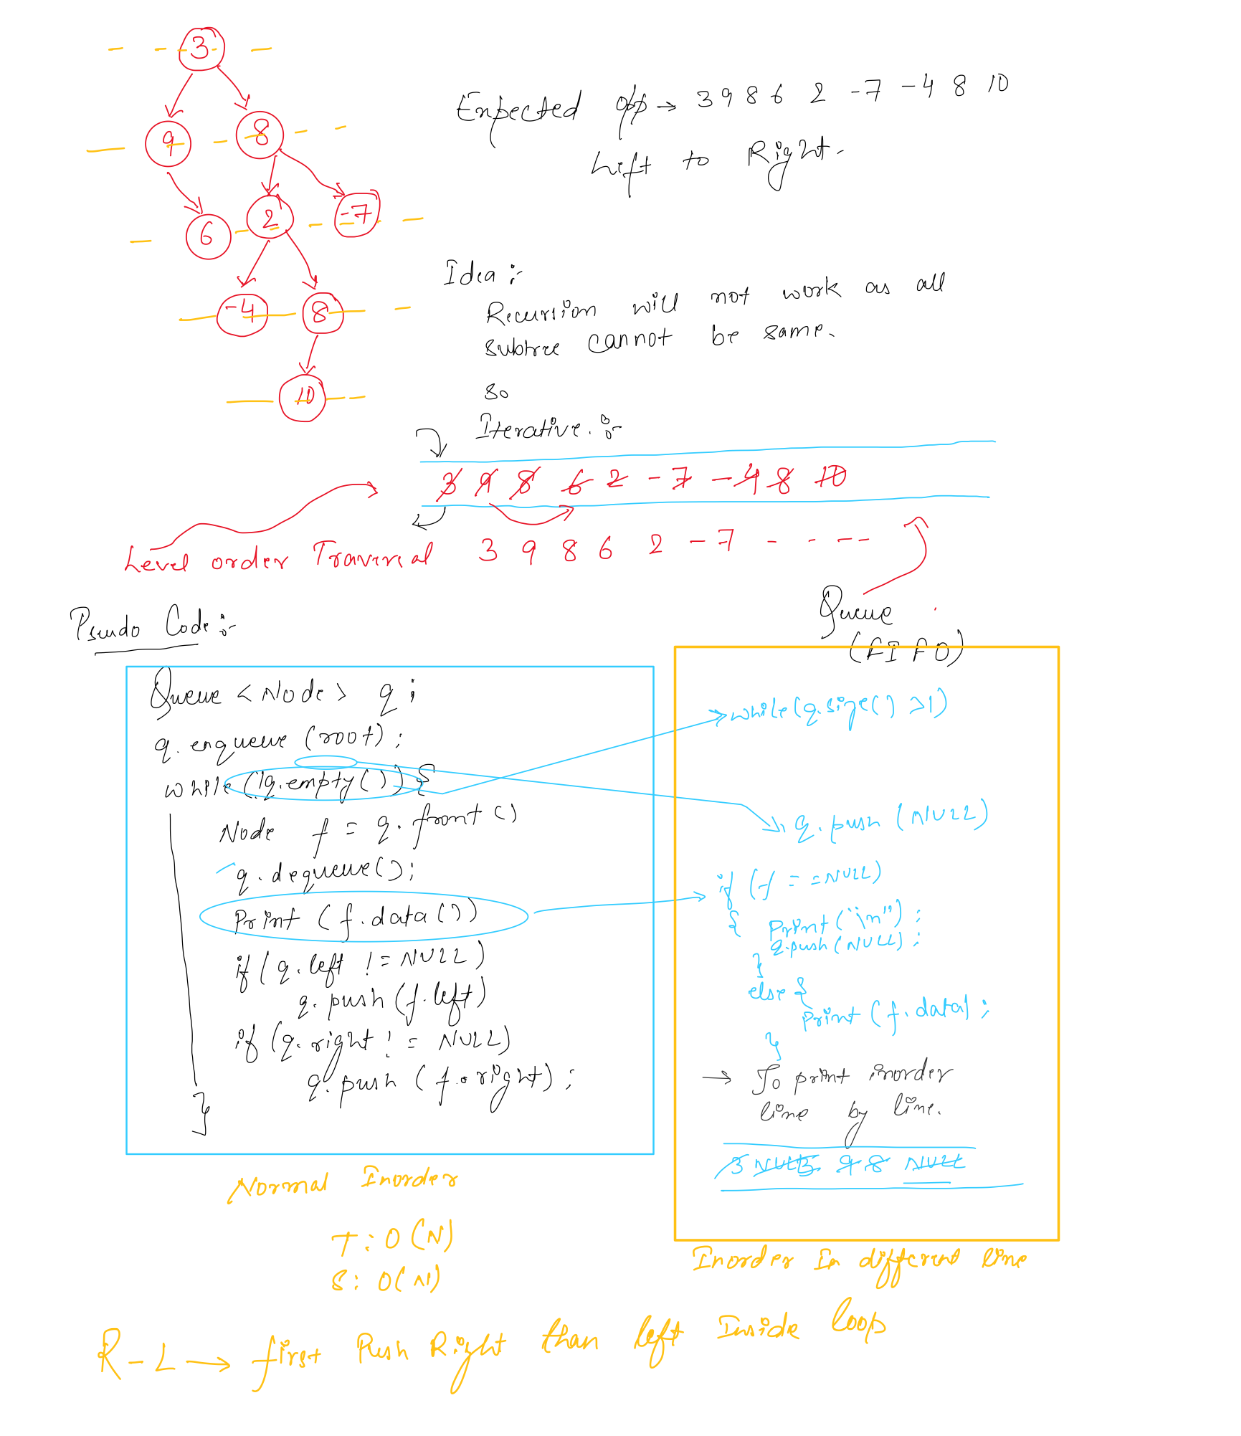 3
9 8
6 2 -7
-4 8
10
Expected o/p → 3 9 8 6 2 -7 -4 8 10
Left to Right.
Idea :-
Recursion will not work as all
subtree cannot be same.
So
Iterative. :-
3 9 8 6 2 -7 -4 8 10
Level order Traversal 3 9 8 6 2 -7 - - - - -
Queue
(FIFO)
Pseudo Code :-
Queue <Node> q ;
q. enqueue (root) ;
while (!q.empty()) {
Node f = q. front ()
q. dequeue();
Print (f.data())
if (q. left != NULL)
q. push (f.left)
if (q. right != NULL)
q. push (f.right) ;
}
Normal Inorder
T : O(N)
S : O(N)
while (q.size() >1)
q. push (NULL)
if (f == NULL)
{ Print ("\n") ;
q.push (NULL) ;
}
else {
Print (f. data) ;
}
→ To print inorder
line by line.
3 NULL 9 8 NULL
Inorder In different line
R-L → first Push Right than left Inside loop